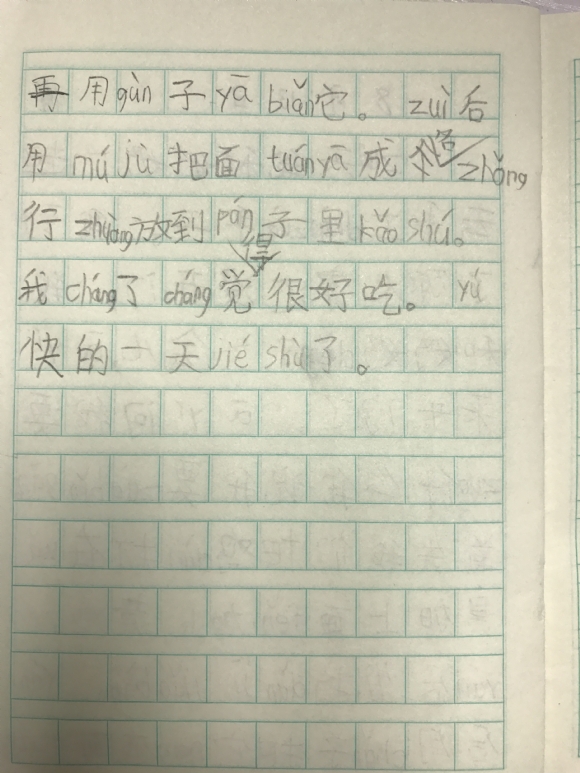 再用gùn子yā biǎn它。zuì后
用mú jù把面tuán yā成各zhǒng
行zhuàng放到pán子里kǎo shú。
我cháng了cháng觉得很好吃。yú
快的一天jié shù了。